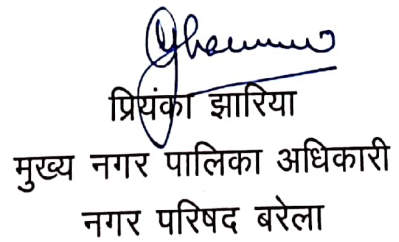 प्रियंका झारिया
मुख्य नगर पालिका अधिकारी
नगर परिषद बरेला